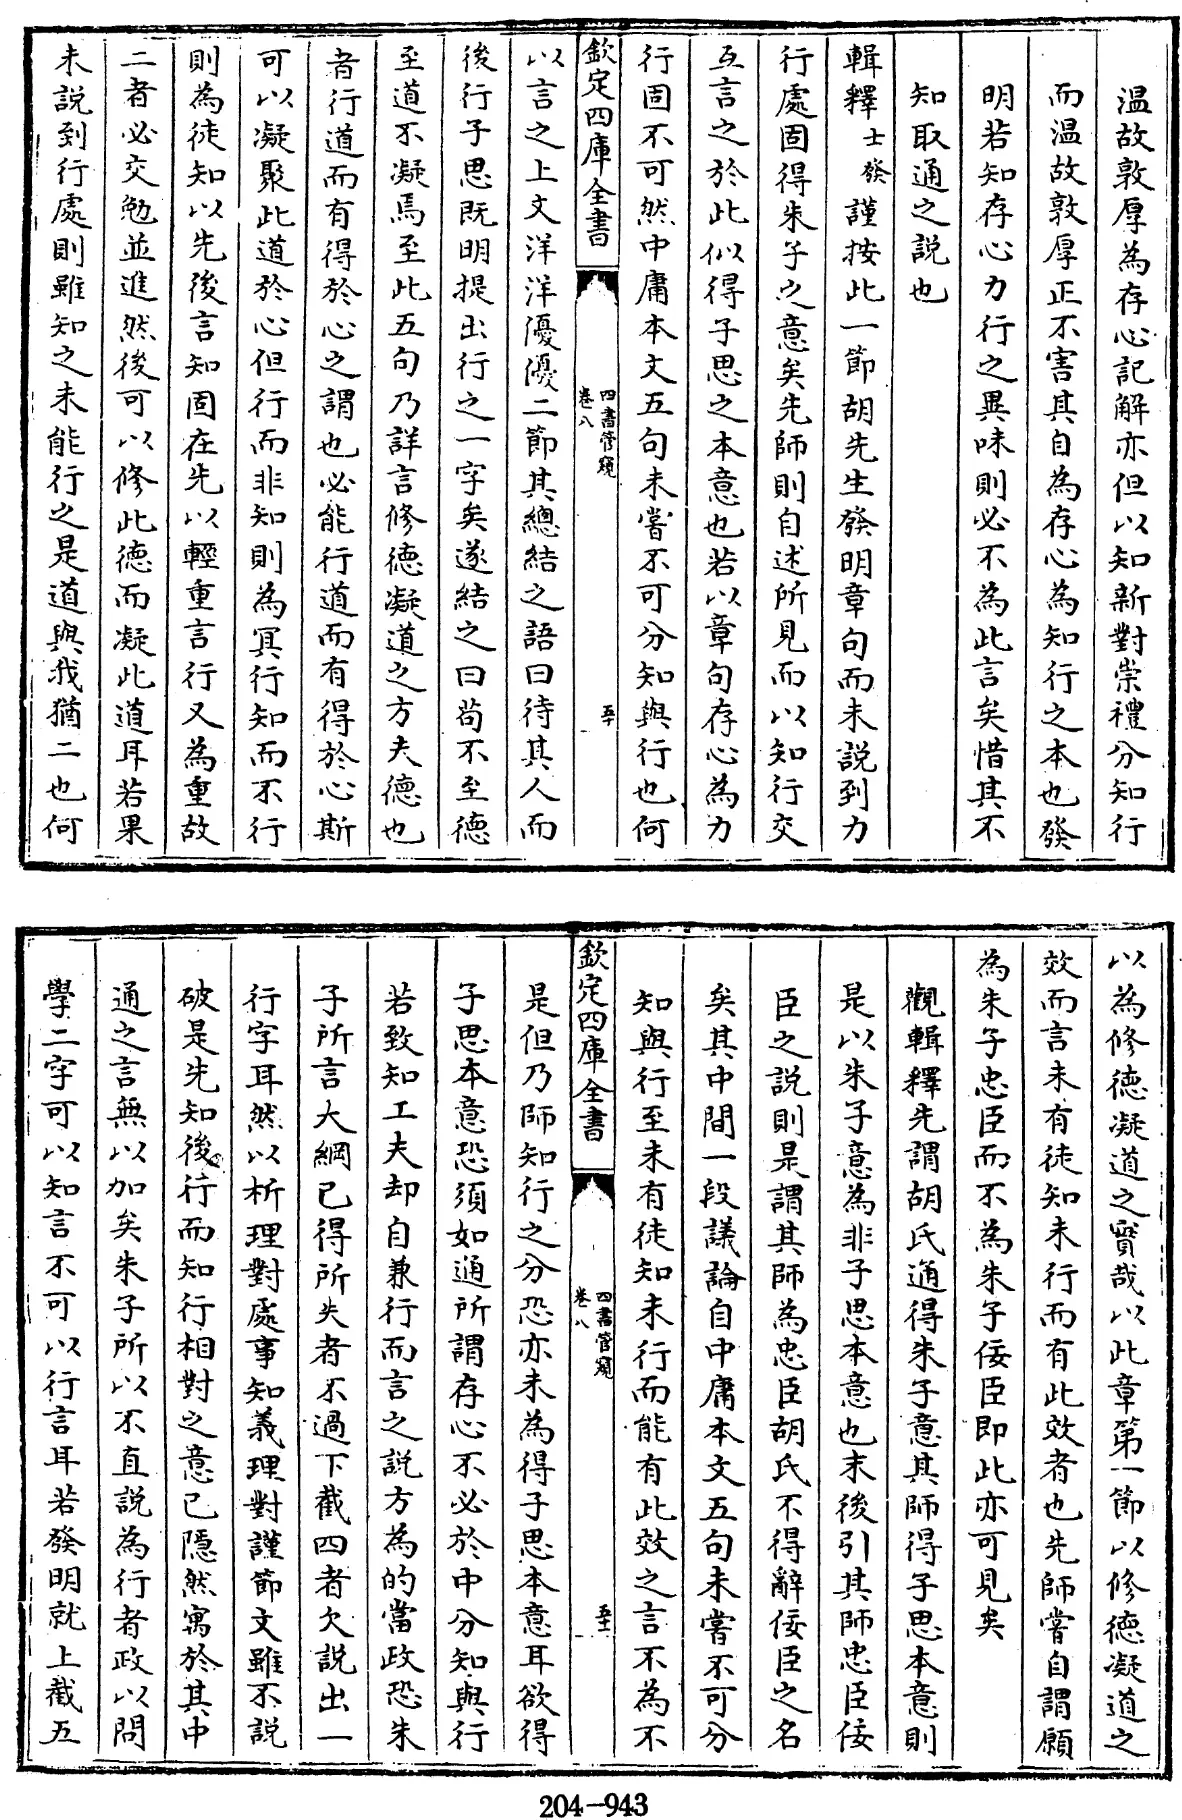 温故敦厚為存心記解亦但以知新對崇禮分知行
而温故敦厚正不害其自為存心為知行之本也發
明若知存心力行之異味則必不為此言矣惜其不
知取通之説也
輯釋士發謹按此一節胡先生發明章句而未説到力
行處固得朱子之意矣先師則自述所見而以知行交
互言之於此似得子思之本意也若以章句存心為力
行固不可然中庸本文五句未嘗不可分知與行也何
欽定四庫全書
四書管窺
卷八
五十
以言之上文洋洋優優二節其總結之語曰待其人而
後行子思既明提出行之一字矣遂結之曰苟不至德
至道不凝焉至此五句乃詳言修德凝道之方夫德也
者行道而有得於心之謂也必能行道而有得於心斯
可以凝聚此道於心但行而非知則為冥行知而不行
則為徒知以先後言知固在先以輕重言行又為重故
二者必交勉並進然後可以修此德而凝此道耳若果
未説到行處則雖知之未能行之是道與我猶二也何
以為修徳凝道之實哉以此章第一節以修徳凝道之
效而言未有徒知未行而有此效者也先師嘗自謂願
為朱子忠臣而不為朱子佞臣即此亦可見矣
觀輯釋先謂胡氏通得朱子意其師得子思本意則
是以朱子意為非子思本意也末後引其師忠臣佞
臣之説則是謂其師為忠臣胡氏不得辭佞臣之名
矣其中間一段議論自中庸本文五句未嘗不可分
知與行至未有徒知未行而能有此效之言不為不
欽定四庫全書
四書管窺
卷八
五十一
是但乃師知行之分恐亦未為得子思本意耳欲得
子思本意恐須如通所謂存心不必於中分知與行
若致知工夫却自兼行而言之説方為的當政恐朱
子所言大綱已得所失者不過下截四者欠説出一
行字耳然以析理對處事知義理對謹節文雖不説
破是先知後行而知行相對之意已隱然寓於其中
通之言無以加矣朱子所以不直説為行者政以問
學二字可以知言不可以行言耳若發明就上截五
204-943